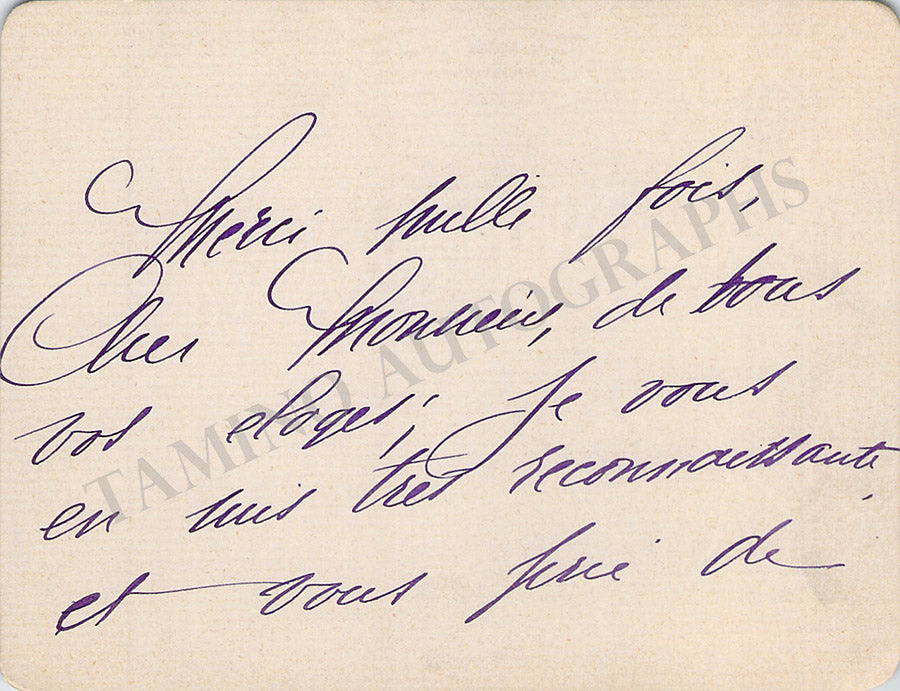 Merci mille fois,
Cher Monsieur, de tous
vos eloges; Je vous
en suis très reconnaissante,
et vous prie de
TAMINO AUTOGRAPHS